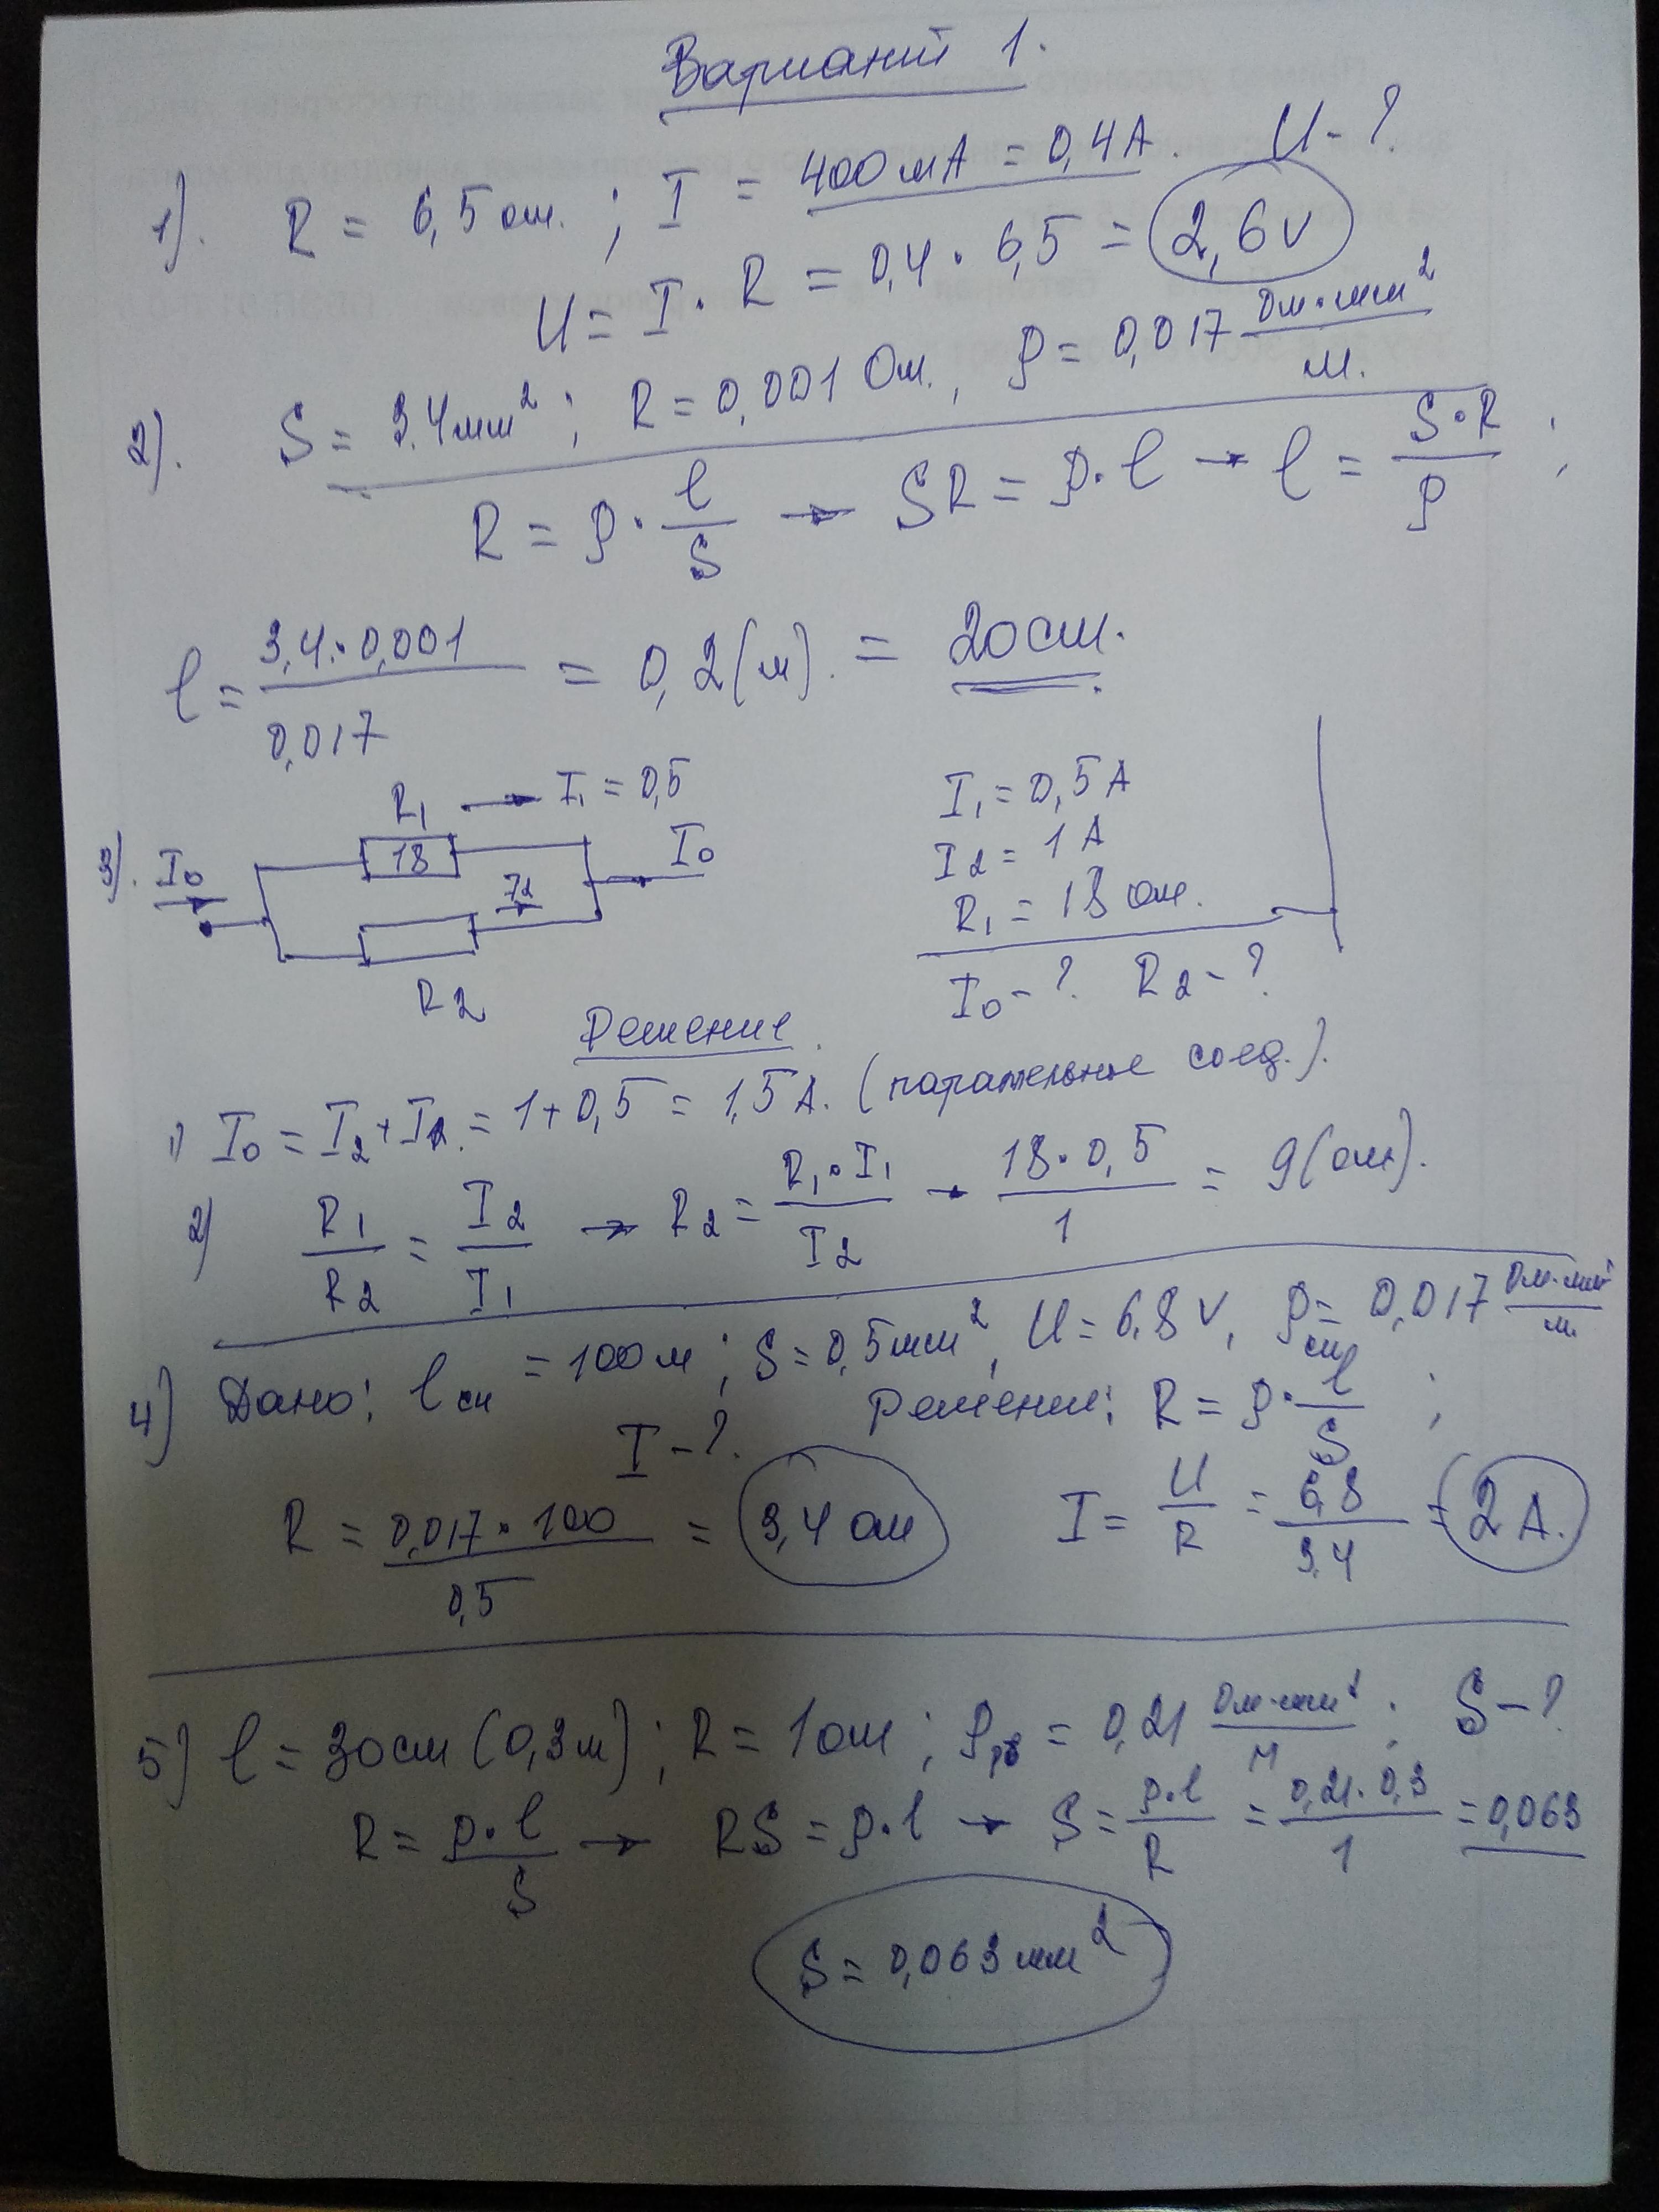 Вариант 1.
1). R = 6,5 ом. ; I = 400 мА = 0,4 А. U - ?
U = I · R = 0,4 · 6,5 = 2,6 v
2). S = 3.4 мм² ; R = 0,001 Ом. , ρ = 0,017 Ом·мм²/м.
R = ρ · l/S → SR = ρ · l → l = S·R/ρ ;
l = 3,4 · 0,001/0,017 = 0,2 (м). = 20 см.
R₁ → I₁ = 0,5
3). I₀ 18 I₂ I₀
R₂
I₁ = 0,5 А
I₂ = 1 А
R₁ = 18 ом.
I₀ - ? R₂ - ?
Решение.
1) I₀ = I₂ + I₁. = 1 + 0,5 = 1,5 А. (параллельное соед.).
2) R₁/R₂ = I₂/I₁ → R₂ = R₁ · I₁/I₂ → 18 · 0,5/1 = 9 (ом).
4) Дано: l си = 100 м ; S = 0,5 мм², U = 6,8 v, ρ си = 0,017 Ом·мм²/м.
I - ?. Решение: R = ρ · l/S ;
R = 0,017 · 100/0,5 = 3,4 ом I = U/R = 6,8/3,4 = 2 А.
5) l = 30 см (0,3 м) ; R = 1 ом ; ρ = 0,21 Ом·мм²/м ; S - ?
R = ρ · l/S → RS = ρ · l → S = ρ·l/R = 0,21 · 0,3/1 = 0,063
S = 0,063 мм²